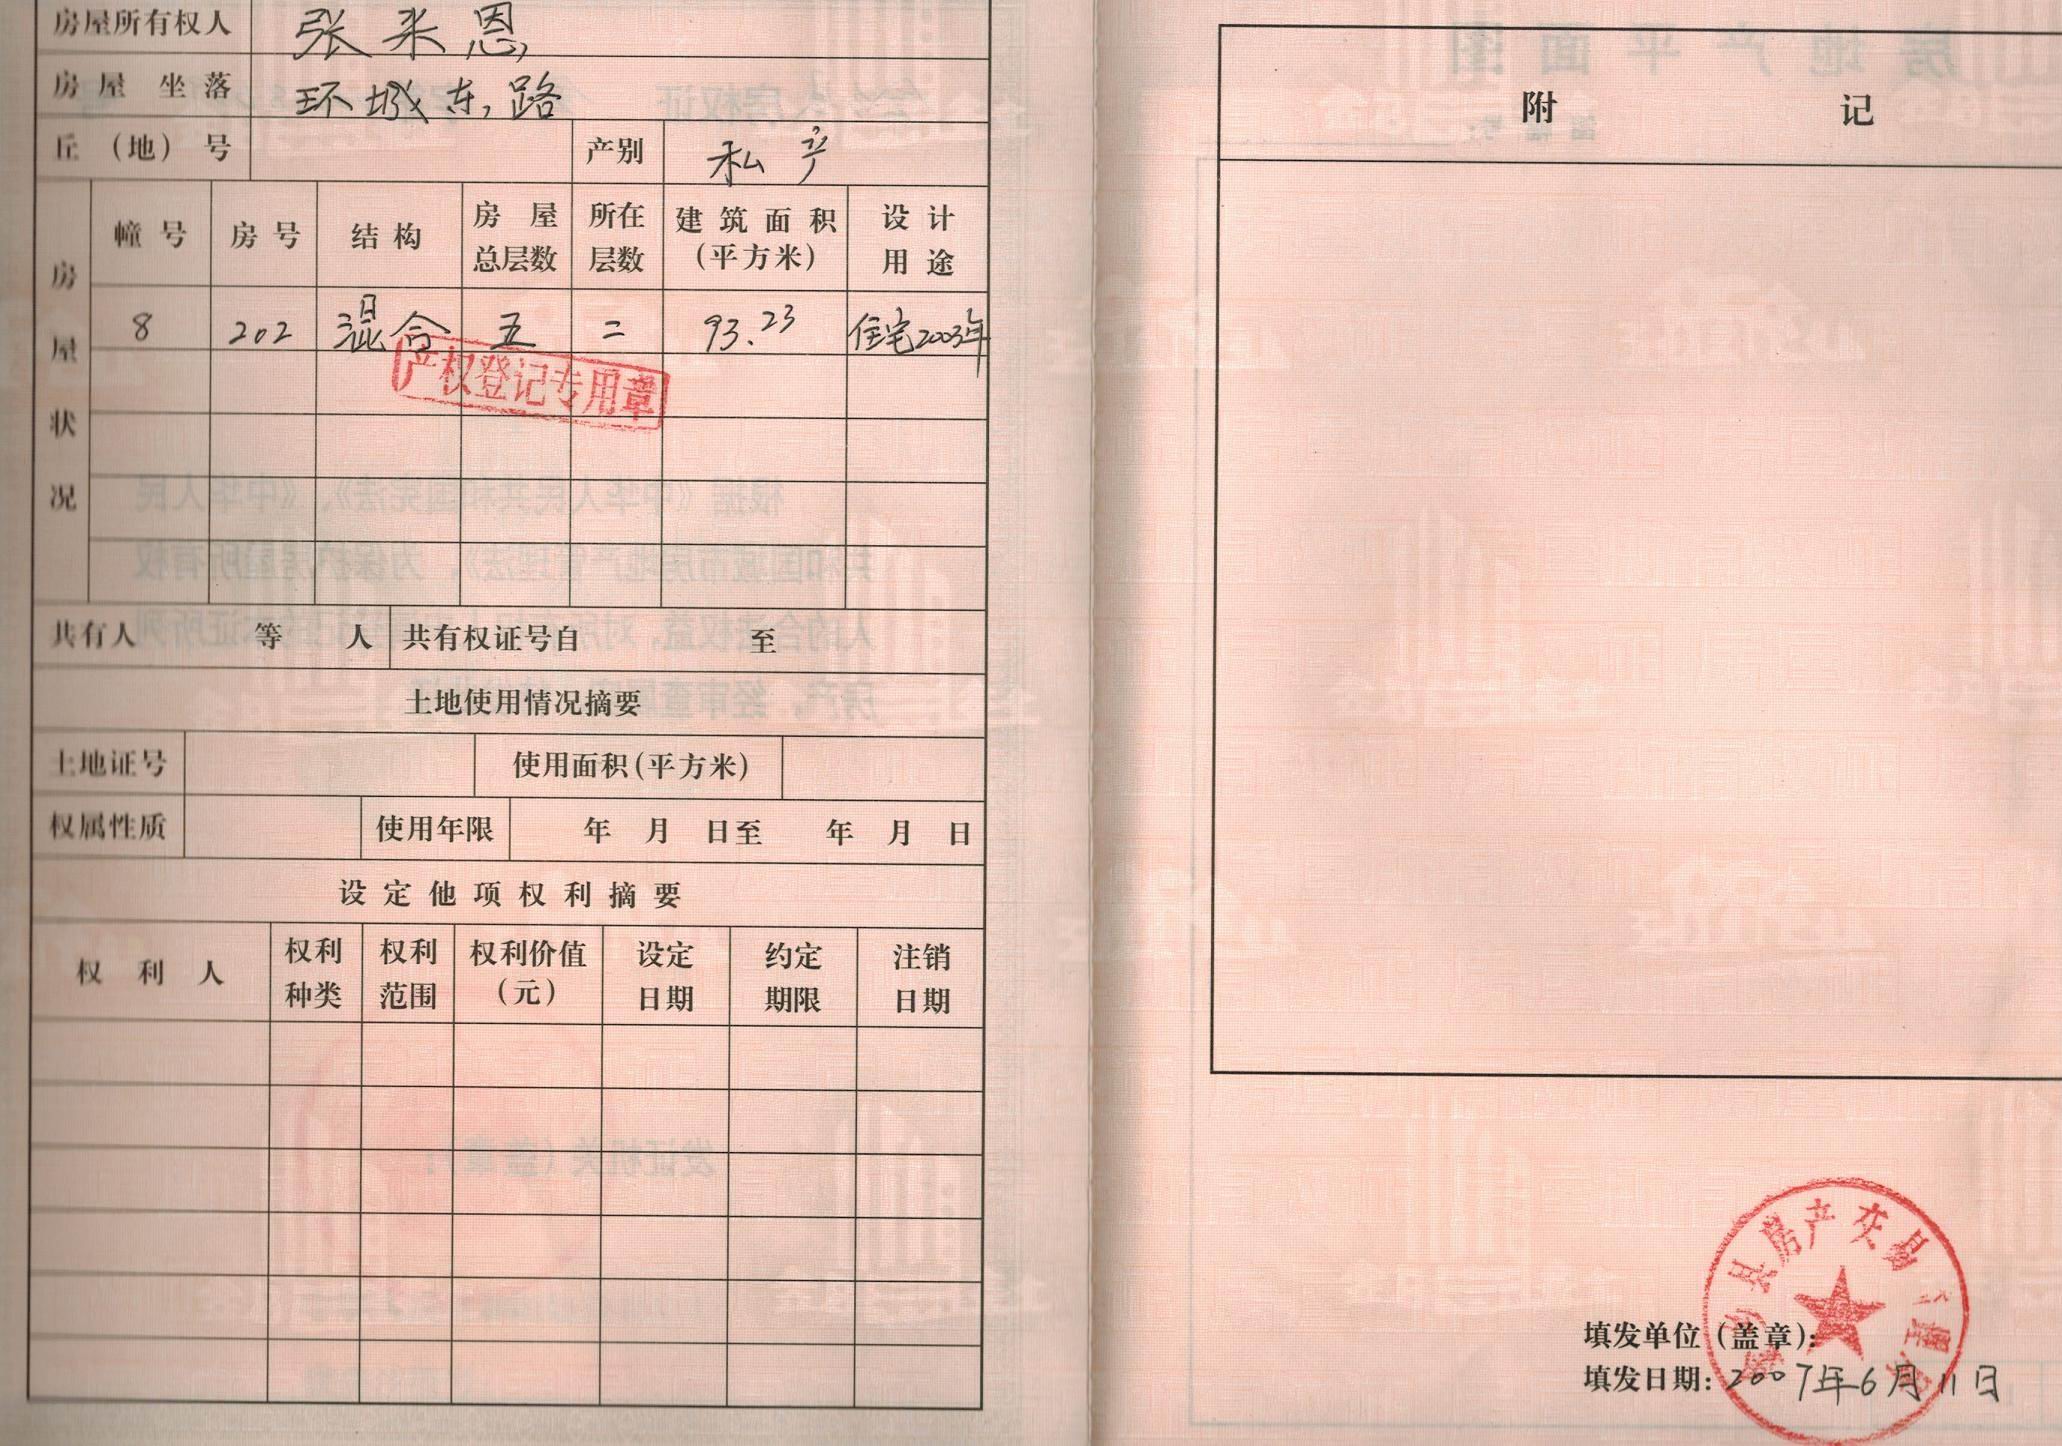 房屋所有权人 张来恩
房屋坐落 环城东路
丘（地）号 产别 私产
房屋状况
幢号 房号 结构 房屋总层数 所在层数 建筑面积（平方米） 设计用途
8 202 混合 五 二 93.23 住宅2003年
产权登记专用章
共有人 等 人 共有权证号自 至
土地使用情况摘要
土地证号 使用面积(平方米)
权属性质 使用年限 年 月 日至 年 月 日
设定他项权利摘要
权利人 权利种类 权利范围 权利价值（元） 设定日期 约定期限 注销日期
附 记
县房产交易 理
填发单位（盖章）:
填发日期: 2007年6月11日